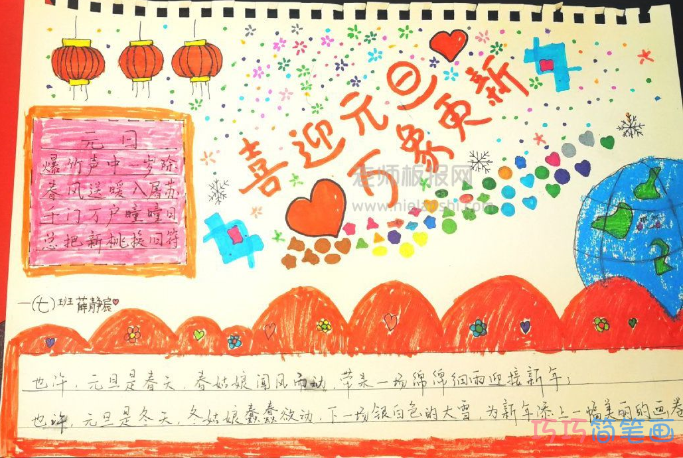 喜迎元旦
万象更新
老师板报网
元日
爆竹声中一岁除
春风送暖入屠苏
千门万户曈曈日
总把新桃换旧符
一(七)班 薛静宸
也许，元旦是春天，春姑娘闻风而动，带来一场绵绵细雨迎接新年；
也许，元旦是冬天，冬姑娘蠢蠢欲动，下一场银白色的大雪，为新年添上一幅美丽的画卷
巧巧简笔画